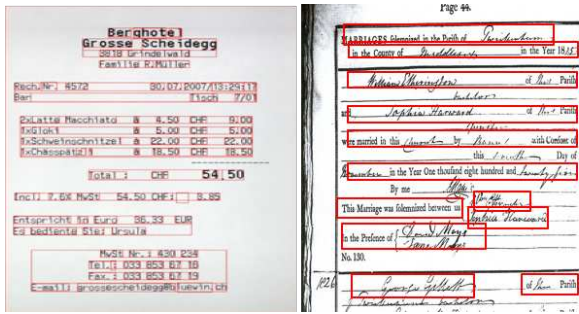 Berghotel
Grosse Scheidegg
3818 Grindelwald
Familie R.Müller
Rech.Nr. 4572 30.07.2007/13:29:17
Bar Tisch 7/01
2xLatte Macchiato à 4.50 CHF 9.00
1xGloki à 5.00 CHF 5.00
1xSchweinschnitzel à 22.00 CHF 22.00
1xChässpätzli à 18.50 CHF 18.50
Total: CHF 54.50
Incl. 7.6% MwSt 54.50 CHF: 3.85
Entspricht in Euro 36.33 EUR
Es bediente Sie: Ursula
MwSt Nr.: 430 234
Tel.: 033 853 67 16
Fax.: 033 853 67 19
E-mail: grossescheidegg@bluewin.ch
Page 44.
MARRIAGES solemnized in the Parish of
in the County of Middlesex in the Year 18
William of this Parish
and Sophia Harward of this Parish
were married in this Church by Banns with Consent of
this Day of
November in the Year One thousand eight hundred and twenty five
By me
This Marriage was solemnized between us
Sophia Harward
in the Presence of David Mayo
Jane Mayo
No. 130.
1826
George of this Parish